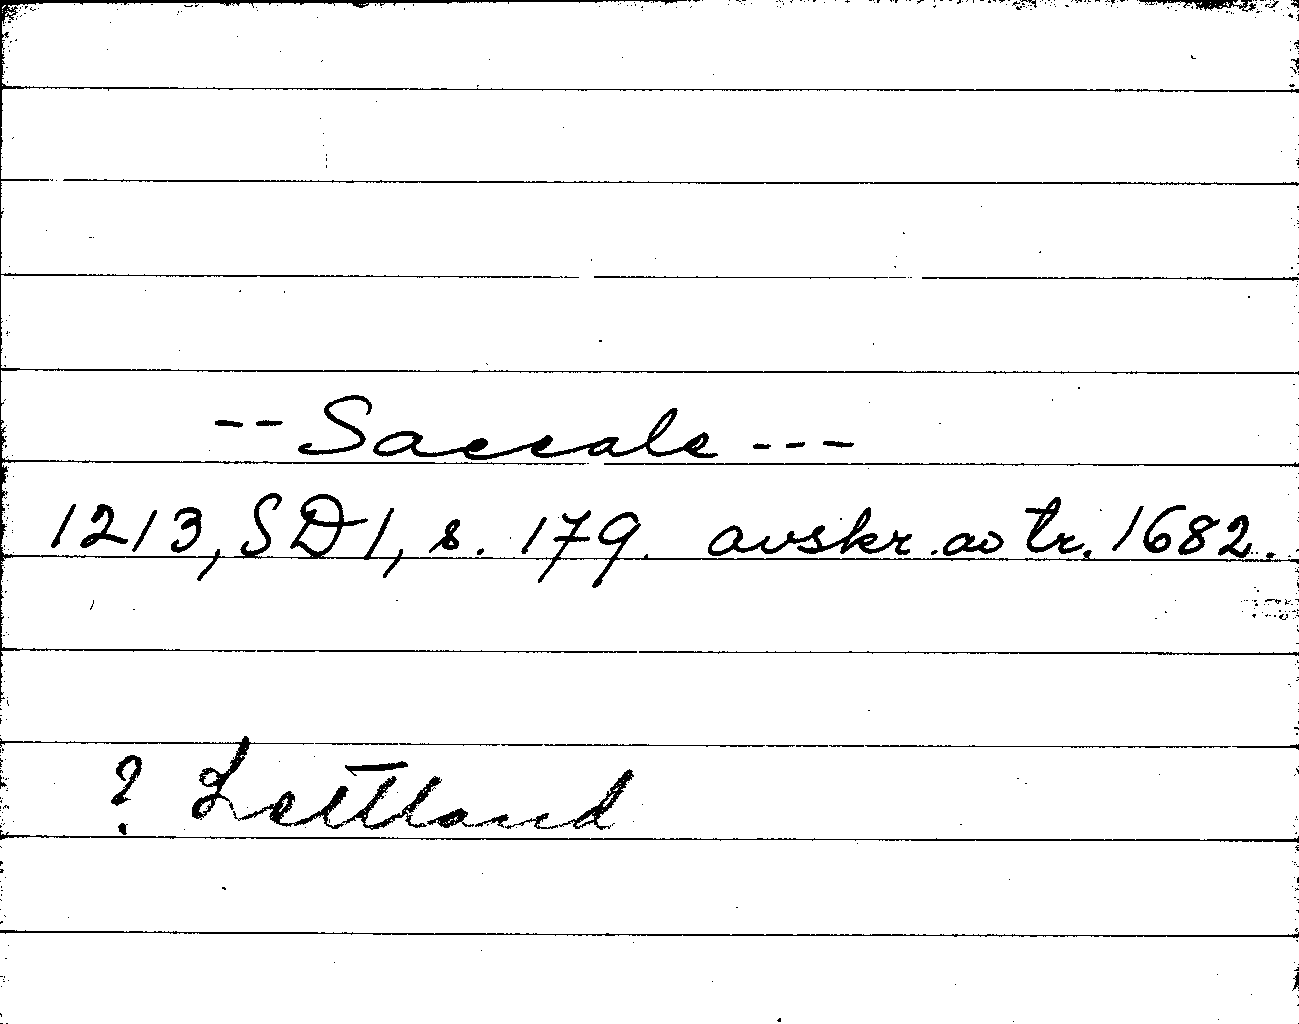 -- Saccale ---
1213, SD 1, s. 179. avskr. av tr. 1682.
? Lettland